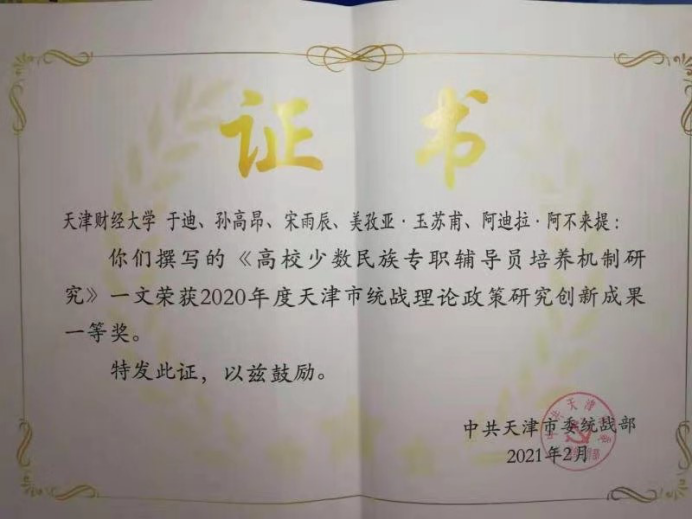 证书
天津财经大学 于迪、孙高昂、宋雨辰、美孜亚·玉苏甫、阿迪拉·阿不来提:
你们撰写的《高校少数民族专职辅导员培养机制研
究》一文荣获2020年度天津市统战理论政策研究创新成果
一等奖。
特发此证，以兹鼓励。
中共天津市委统战部
2021年2月